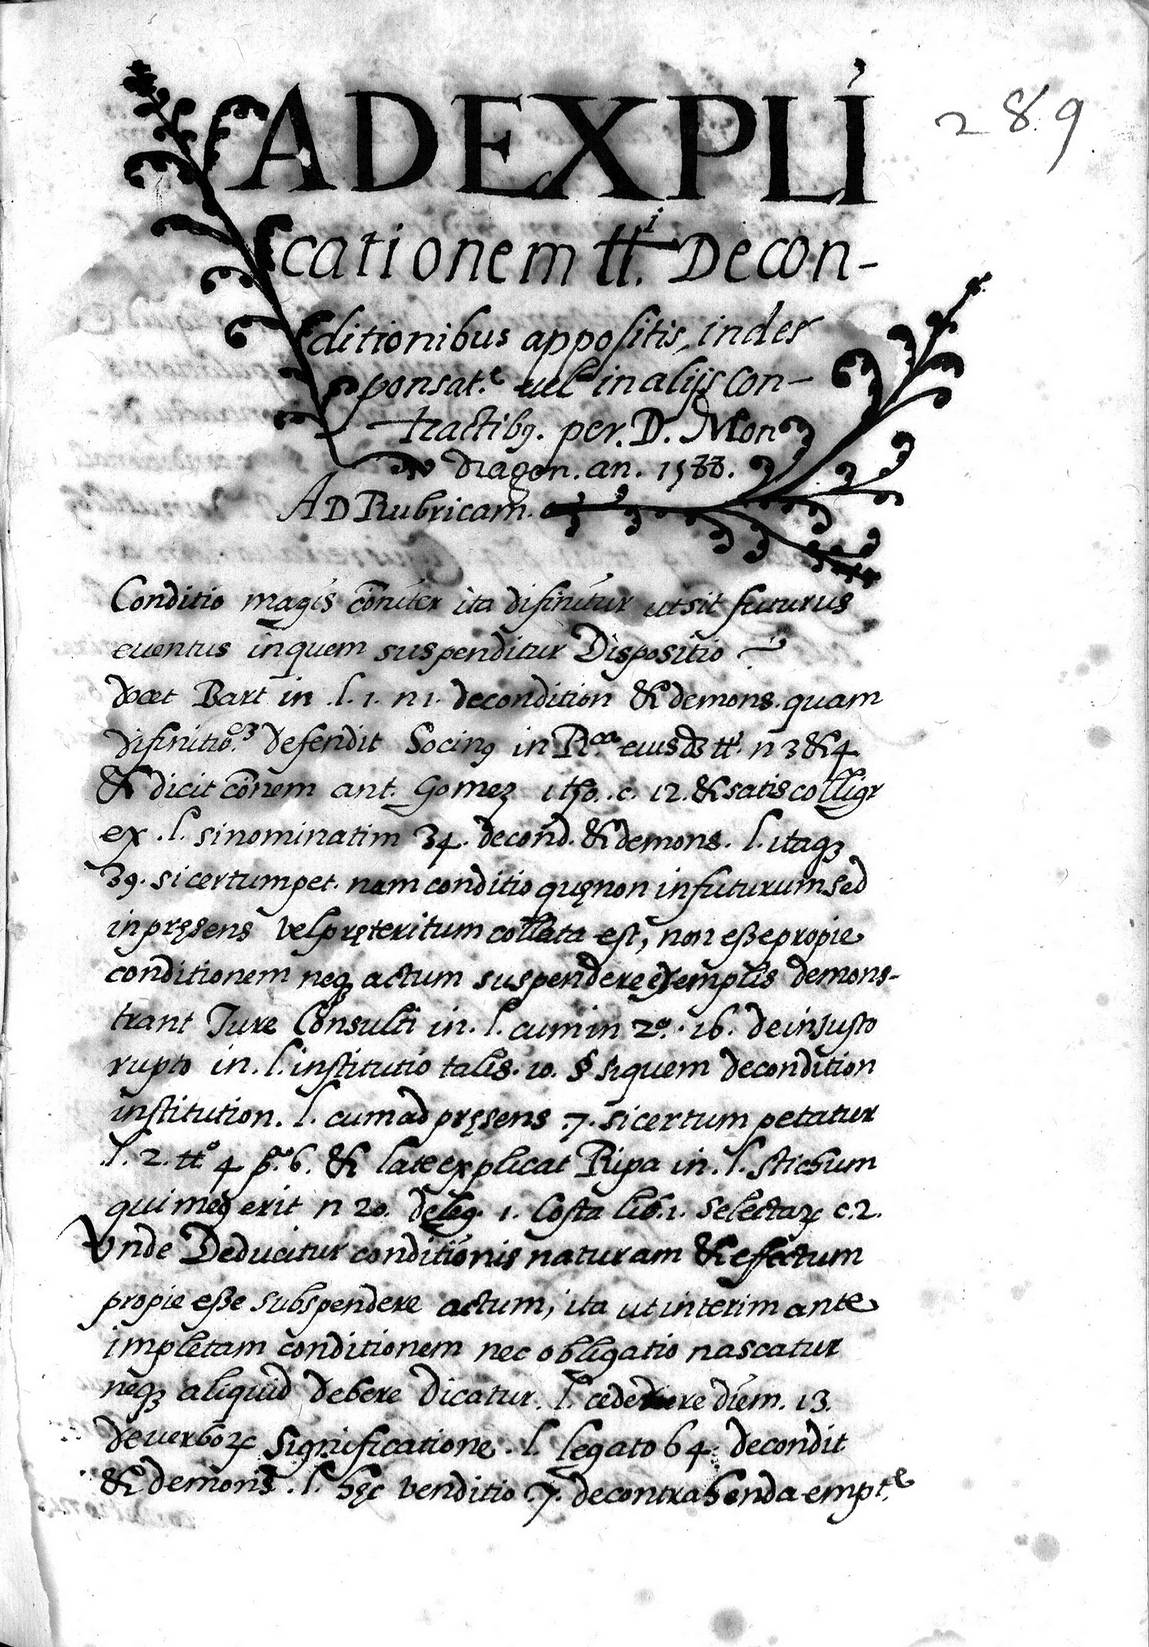 289
AD EXPLI
cationem tti. De con-
ditionibus appositis, in des
ponsat.e vel in alijs con-
tractibq. per. D. Mon
dragon. an. 1588.
AD Rubricam.
Conditio magis cōniter ita difinitur ut sit futurus
euentus in quem suspenditur Dispositio
docet Bart in .l. 1. n 1. de condition & demons. quam
difinitio.3 defendit Socinq in Rca eiusd3 tti n 3 & 4
& dicit cōnem ant. Gomez 1 to. c. 12. & satis colligr
ex .l. si nominatim 34. de cond. & demons. l. itaq3
39. si certum pet. nam conditio quę non in futurum sed
in pręsens vel pręteritum collata est, non eße propie
conditionem neq3 actum suspendere exemplis demons-
trant Jure Consulti in .l. cum in 2o. 16. de injusto
rupto in .l. institutio talis. 10. § si quem de condition
institution. l. cum ad pręsens .7. si certum petatur
l. 2. tto 4 p.o 6. & late explicat Ripa in .l. stichum
qui meq erit n 20. de leg. 1. Costa lib. 1. selectar. c. 2.
Vnde Deducitur conditionis naturam & effectum
propie eße subspendere actum, ita ut interim ante
impletam conditionem nec obligatio nascatur
neq3 aliquid debere dicatur. l. cedere diem. 13.
de verbor. significatione. l. legato 64. de condit
& demons .l. hęc venditio .7. de contrahenda empt.e